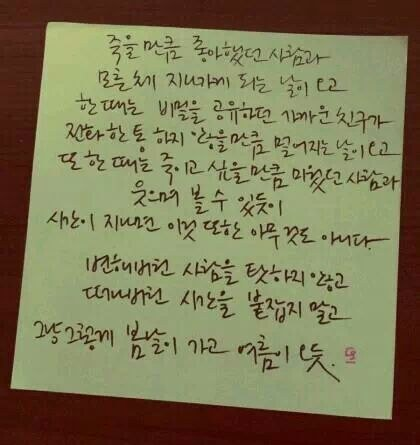 죽을 만큼 좋아했던 사람과
모른체 지나가게 되는 날이 오고
한때는 비밀을 공유하던 가까운 친구가
전화 한 통 하지 않을만큼 멀어지는 날이 오고
또 한때는 죽이고 싶을만큼 미웠던 사람과
웃으며 볼 수 있듯이
시간이 지나면 이것 또한 아무것도 아니다.
변해버린 사람을 탓하지 않고
떠나버린 시간을 붙잡지 말고
그냥 그렇게 봄날이 가고 여름이 오듯.